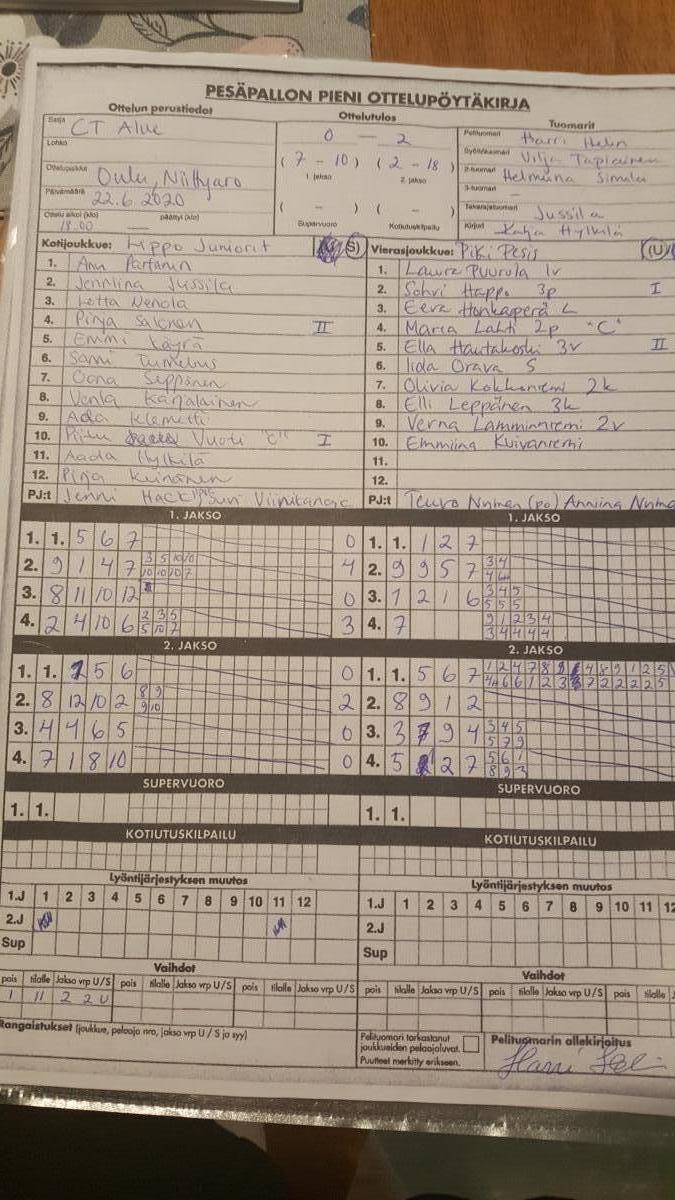 PESÄPALLON PIENI OTTELUPÖYTÄKIRJA
Ottelun perustiedot Ottelutulos Tuomarit
Sarja CT Alue 0 — 2 Pelituomari Harri Helin
Lohko (7 – 10) (2 – 18) Syöttötuomari Vilja Tapiainen
Ottelupaikka Oulu, 1. jakso 2. jakso 2-tuomari Helmiina Simula
Päivämäärä 22.6.2020 3-tuomari –
( – ) ( – ) Takarajatuomari Jussila
Ottelu alkoi (klo) 18.00 päättyi (klo) Supervuoro Kotiutuskilpailu Kirjuri Katja Hylkilä
Kotijoukkue: Hippo Juniorit (S) Vierasjoukkue: PiKi Pesis (U)
1. Anu Partanen 1. Laura Puurula lv
2. Jenniina Jussila 2. Sohvi Happo 3p I
3. Netta Nenola 3. Eeva Honkaperä L
4. Pinja Salonen II 4. Maria Lahti 2p "C"
5. Emmi Köyrä 5. Ella Hautakoski 3v II
6. Sanni 6. Iida Orava S
7. Oona Seppänen 7. Olivia Kokkoniemi 2k
8. Venla Karjalainen 8. Elli Leppänen 3k
9. Ada Klemetti 9. Verna Lamminniemi 2v
10. Vuoti "C" I 10. Emmiina Kuivaniemi
11. Aada Hylkilä 11.
12. Pinja Keinänen 12.
PJ:t Jenni PJ:t Teuvo Nyman (po) Anniina Nyma
1. JAKSO 1. JAKSO
1. 1. 5 6 7 0 1. 1. 1 2 7
2. 9 1 4 7 3 5 10 10 4 2. 9 9 5 7 3 4
10 10 10 7
3. 8 11 10 12 0 3. 1 2 1 6 3 4 5
5 5 5
4. 2 4 10 6 2 3 5 3 4. 7 9 1 2 3 4
5 10 7 3 4 4 4 4
2. JAKSO 2. JAKSO
1. 1. 5 6 0 1. 1. 5 6 7 1 2 4 7 8 9 4 8 9 1 2 5
2. 8 12 10 2 8 9 2 2. 8 9 1 2
9 10
3. 4 4 6 5 0 3. 3 9 4 3 4 5
5 7 9
4. 7 1 8 10 0 4. 5 2 7 5 6 1
8 9 3
SUPERVUORO SUPERVUORO
1. 1. 1. 1.
KOTIUTUSKILPAILU KOTIUTUSKILPAILU
Lyöntijärjestyksen muutos Lyöntijärjestyksen muutos
1.J 1 2 3 4 5 6 7 8 9 10 11 12 1.J 1 2 3 4 5 6 7 8 9 10 11 12
2.J 2.J
Sup Sup
Vaihdot Vaihdot
pois tilalle Jakso vrp U/S pois tilalle Jakso vrp U/S pois tilalle Jakso vrp U/S pois tilalle Jakso vrp U/S pois tilalle Jakso vrp U/S pois tilalle
1 11 2 2 U
Rangaistukset (joukkue, pelaaja nro, jakso vrp U / S ja syy) Pelituomari tarkastanut Pelituomarin allekirjoitus
joukkueiden pelaajaluvat.
Puutteet merkitty erikseen.